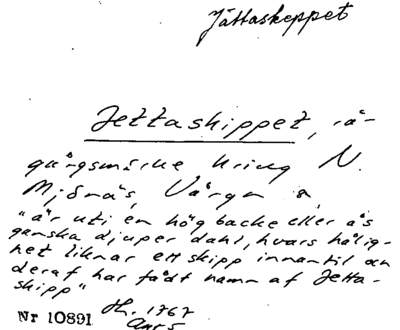 Jättaskeppet
Jettaskippet, rå-
gångsmärke kring N.
Mjönäs, Vårgn
"är uti en hög backe eller ås
ganska djuper dahl, hvars hålig-
het liknar ett skipp innantil och
deraf har fådt namn af Jetta-
skipp"
Nr 10891 Hr. 1767